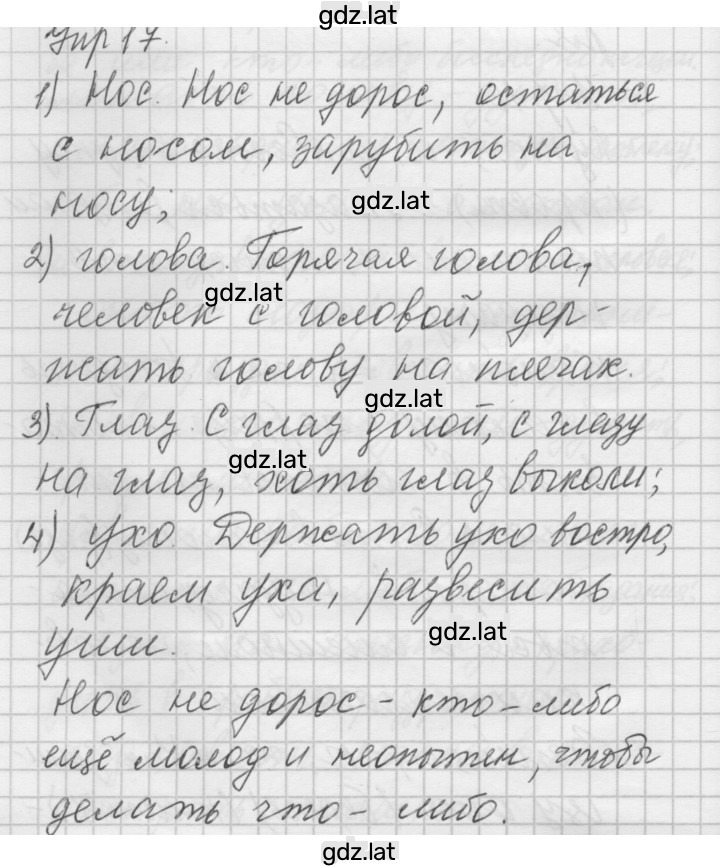 gdz.lat
Упр 17.
1) Нос. Нос не дорос, остаться
с носом, зарубить на
gdz.lat
носу;
2) голова. Горячая голова,
gdz.lat
человек с головой, дер-
жать голову на плечах.
gdz.lat
3). Глаз. С глаз долой, с глазу
gdz.lat
на глаз, хоть глаз выколи;
4) ухо. Держать ухо востро,
gdz.lat
краем уха, развесить
gdz.lat
уши.
Нос не дорос - кто-либо
ещё молод и неопытен, чтобы
делать что-либо.
gdz.lat